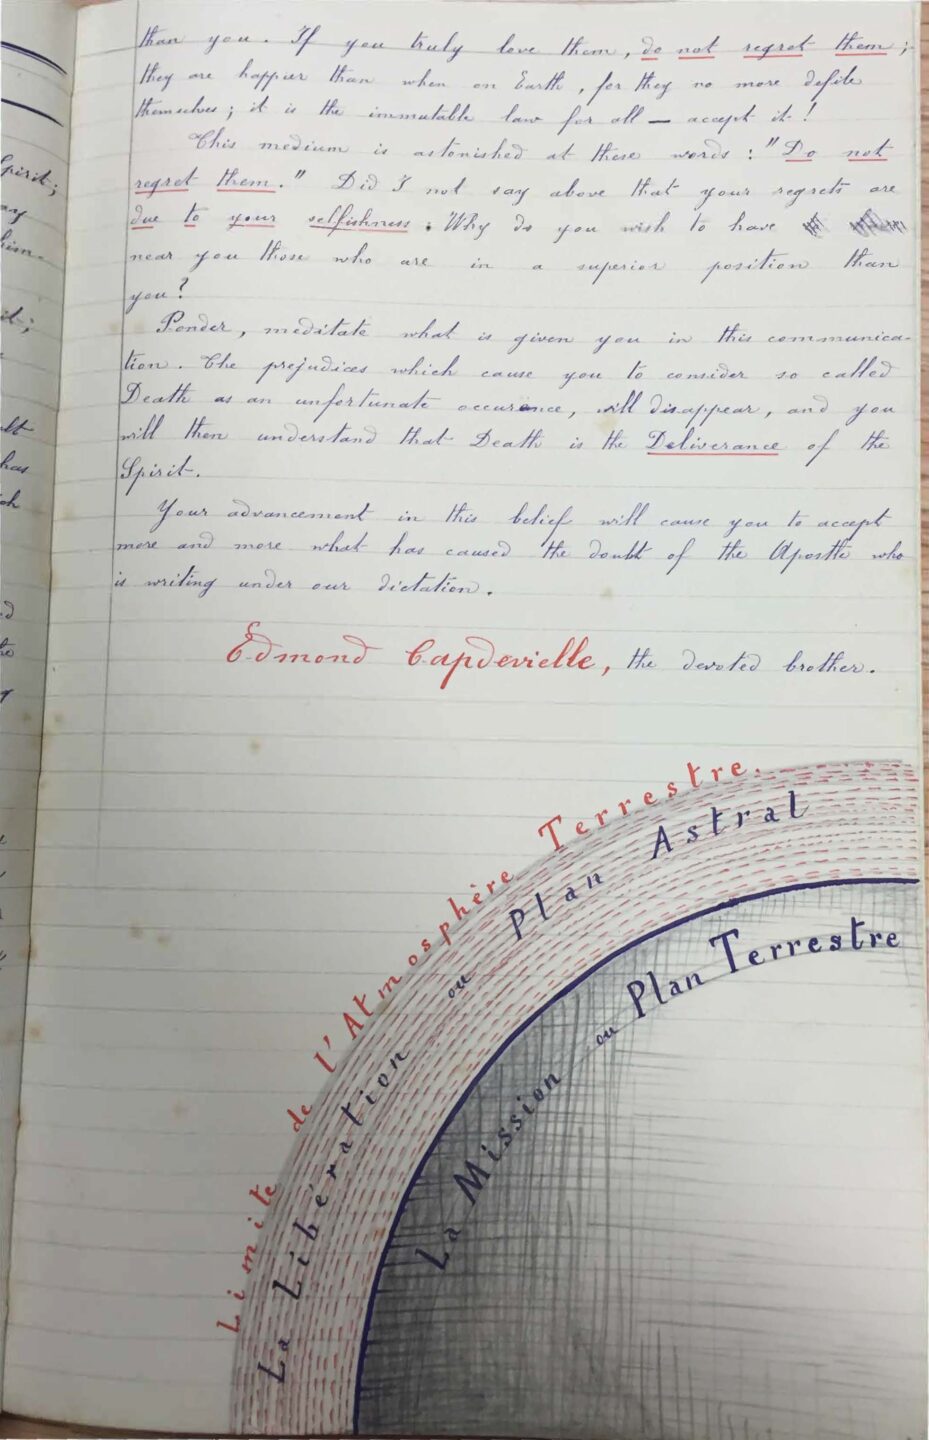 than you. If you truly love them, do not regret them;
they are happier than when on Earth, for they no more defile
themselves; it is the immutable law for all — accept it!
This medium is astonished at these words: "Do not
regret them." Did I not say above that your regrets are
due to your selfishness. Why do you wish to have
near you those who are in a superior position than
you?
Ponder, meditate what is given you in this communica-
tion. The prejudices which cause you to consider so called
Death as an unfortunate occurence, will disappear, and you
will then understand that Death is the Deliverance of the
Spirit.
Your advancement in this belief will cause you to accept
more and more what has caused the doubt of the Apostle who
is writing under our dictation.
Edmond Capdevielle, the devoted brother.
Limite de l'Atmosphère Terrestre.
La Libération ou Plan Astral
La Mission ou Plan Terrestre
Spirit;